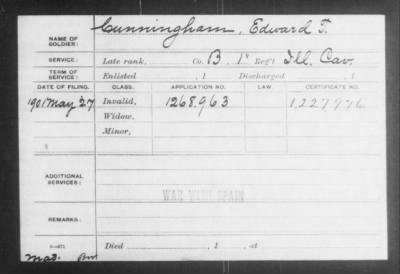 Cunningham, Edward T.
NAME OF SOLDIER:
SERVICE: Late rank, Co. B, 1" Reg't Ill. Cav.
TERM OF SERVICE: Enlisted , 1 Discharged , 1
DATE OF FILING. CLASS. APPLICATION NO. LAW. CERTIFICATE NO.
1901 May 27 Invalid, 1268.963 1227976
Widow,
Minor,
ADDITIONAL SERVICES:
WAR WITH SPAIN
REMARKS:
Died , 1 , at